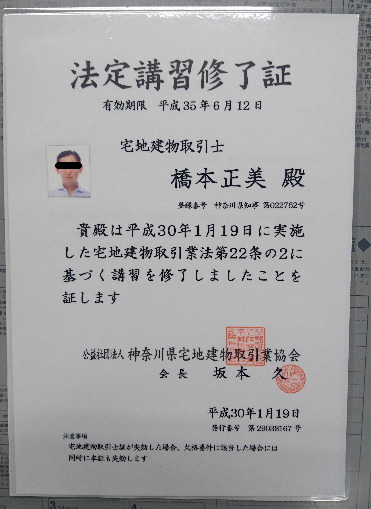 法定講習修了証
有効期限 平成35年6月12日
宅地建物取引士
橋本正美 殿
登録番号 神奈川県知事 第022762号
貴殿は平成30年1月19日に実施
した宅地建物取引業法第22条の2に
基づく講習を修了しましたことを
証します
公益社団法人 神奈川県宅地建物取引業協会
会長 坂本 久
平成30年1月19日
発行番号 第29038167号
注意事項
宅地建物取引士証が失効した場合、欠格要件に該当した場合には
同時に本証も失効します